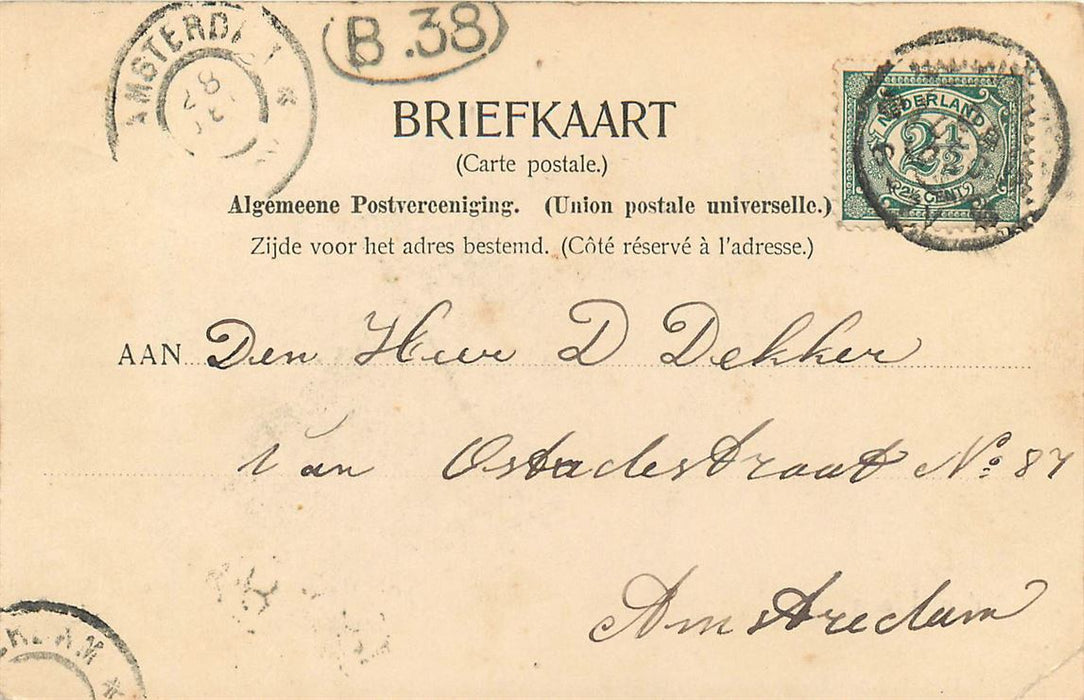 AMSTERDA
28
B.38
BRIEFKAART
(Carte postale.)
Algemeene Postvereeniging. (Union postale universelle.)
Zijde voor het adres bestemd. (Côté réservé à l'adresse.)
NEDERLAND
2½
2½ CENT
AAN Den Heer D Dekker
Van Ostadestraat No. 87
Amstredam